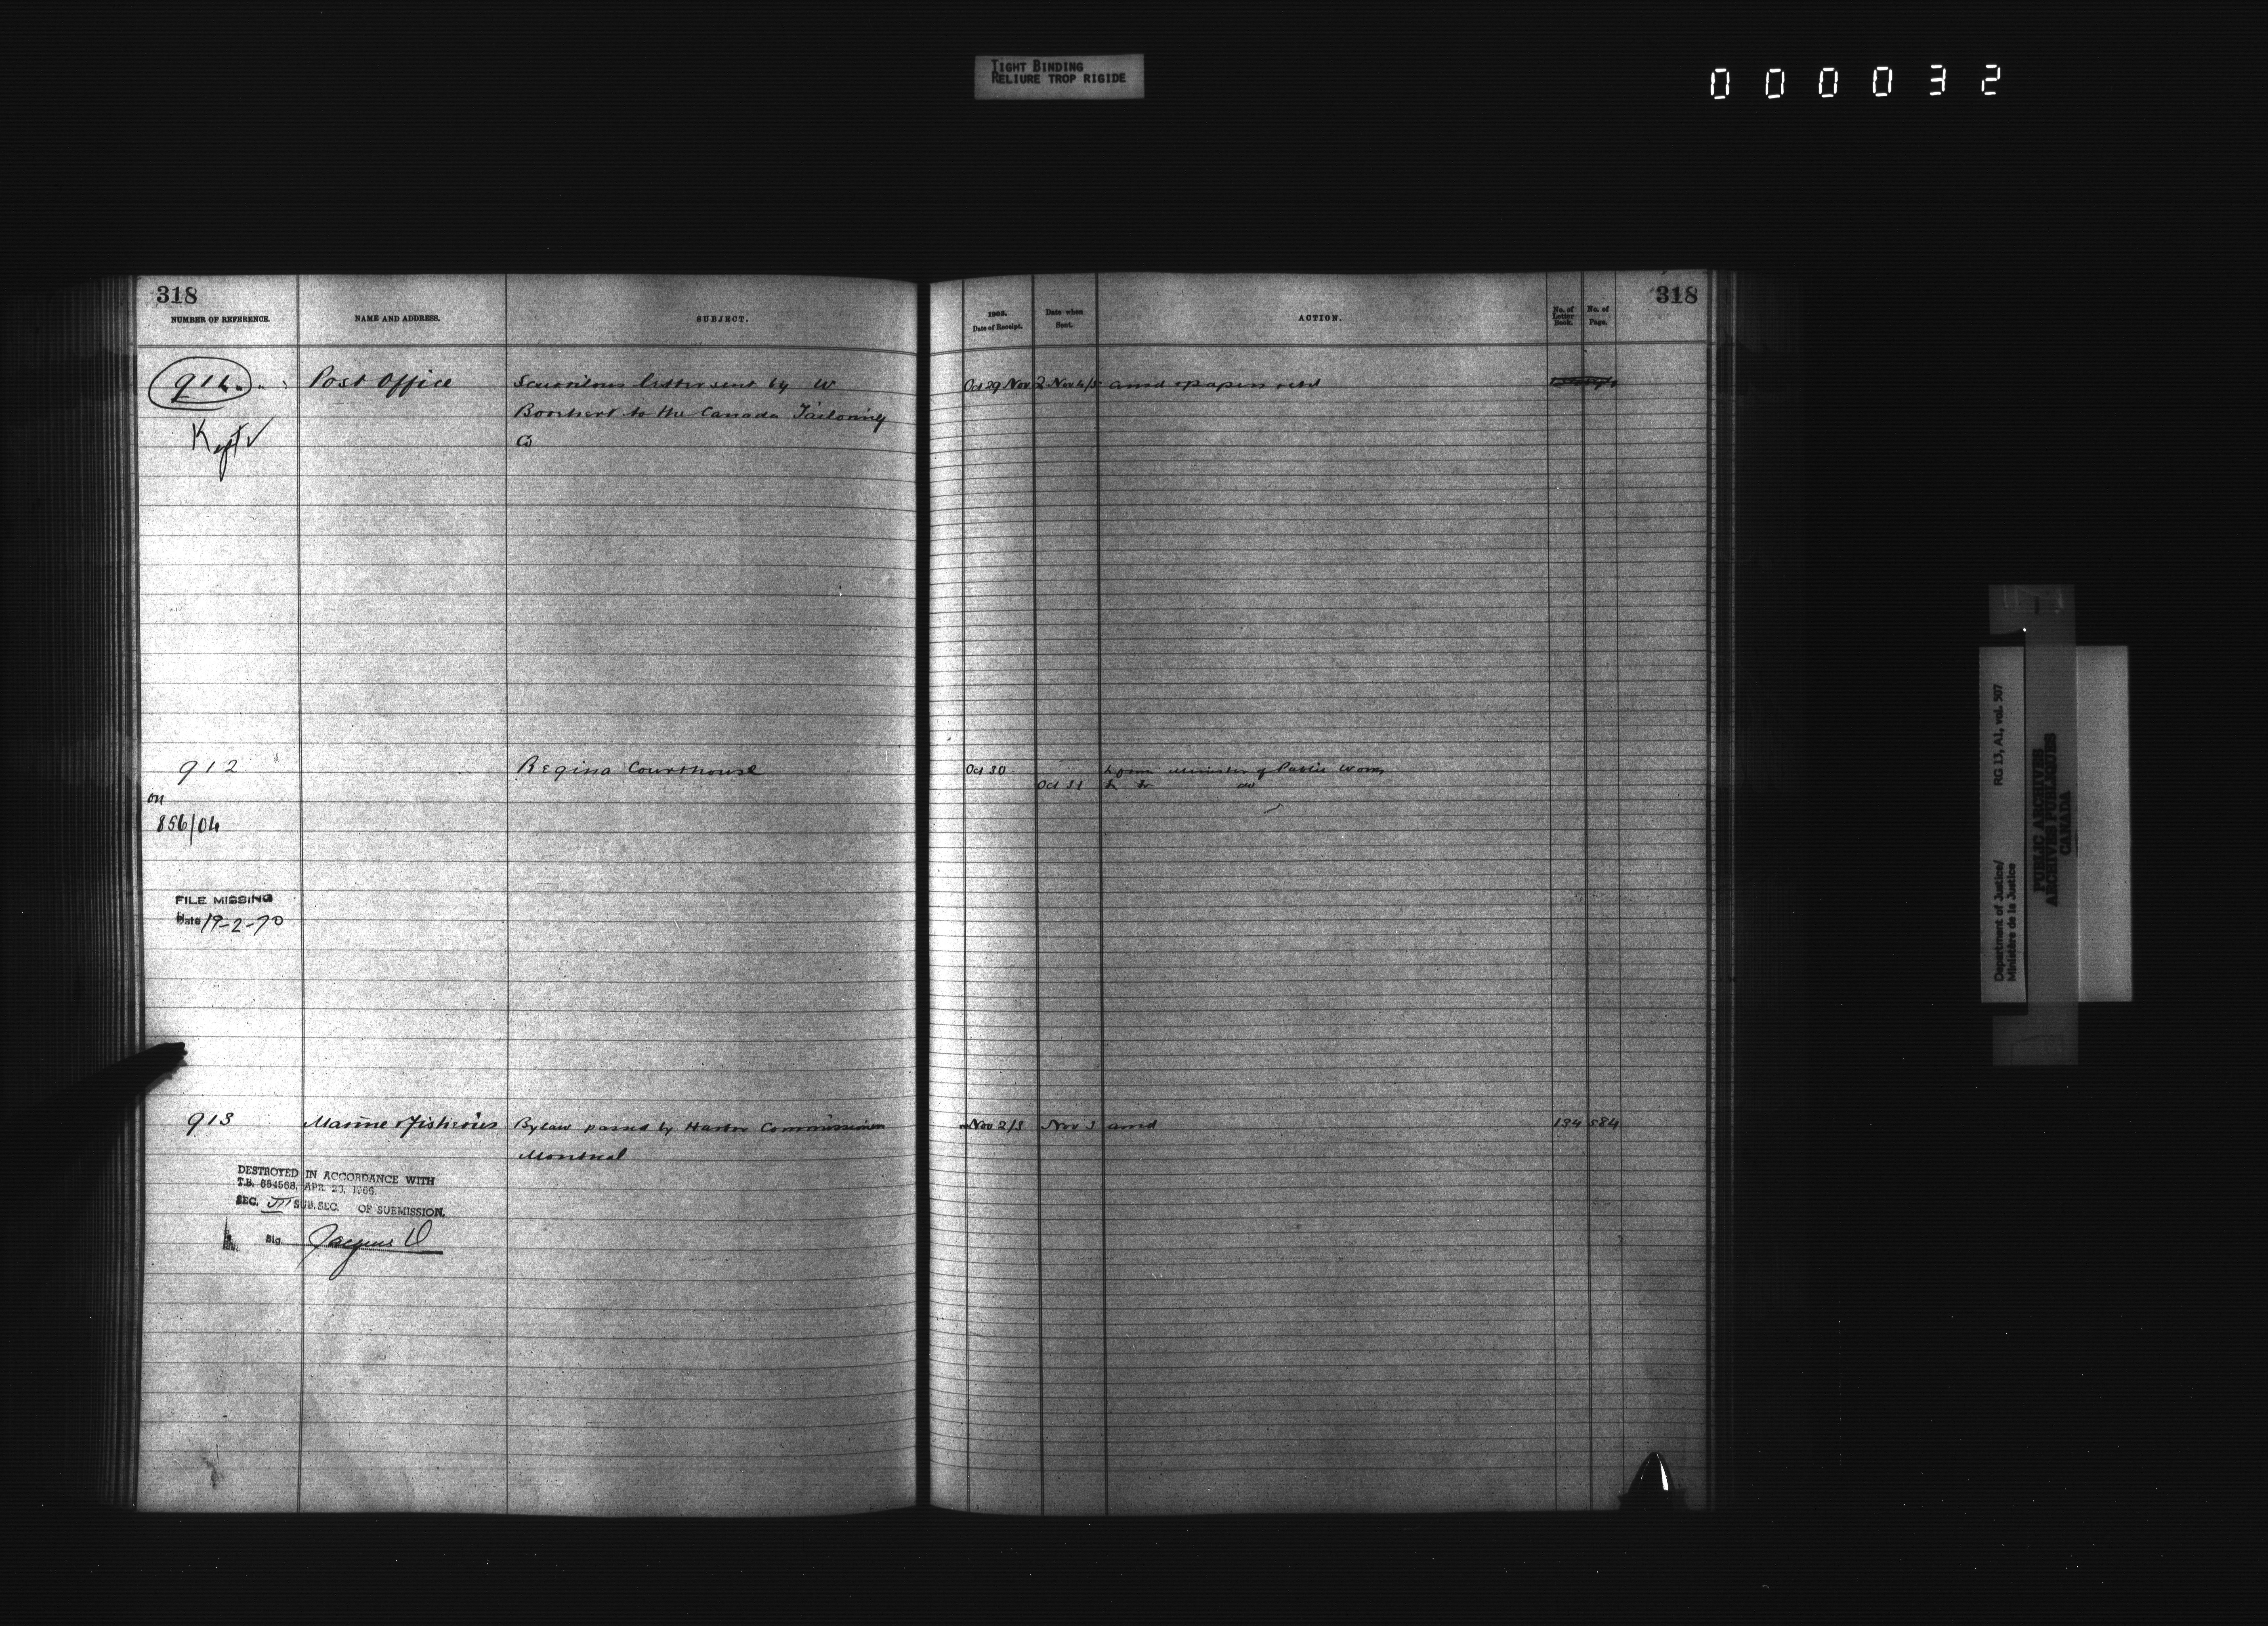 TIGHT BINDING
RELIURE TROP RIGIDE
000032
318
NUMBER OF REFERENCE.
NAME AND ADDRESS.
SUBJECT.
1903.
Date of Receipt.
Date when
Sent.
ACTION.
No. of
Letter
Book.
No. of
Page.
318
Post Office
Scurrilous letter sent by W
to the Canada Tailoring
Co
Oct 29 Nov 2 Nov 4/5 & papers retd
Kept ✓
912
Regina Courthouse
Oct 30
Minister of Public Works
Oct 31
on
856/04
FILE MISSING
Date 19-2-70
913
Marine & Fisheries
Bylaw passed by Harbor Commissioners
Montreal
Nov 2/3
Nov 3
134
584
DESTROYED IN ACCORDANCE WITH
T.B. 654568, APR 1966
SEC. III SUB.SEC. OF SUBMISSION.
Sig. Jacques
RG 13, A1, vol. 507
Department of Justice/
Ministère de la Justice
PUBLIC ARCHIVES
ARCHIVES PUBLIQUES
CANADA